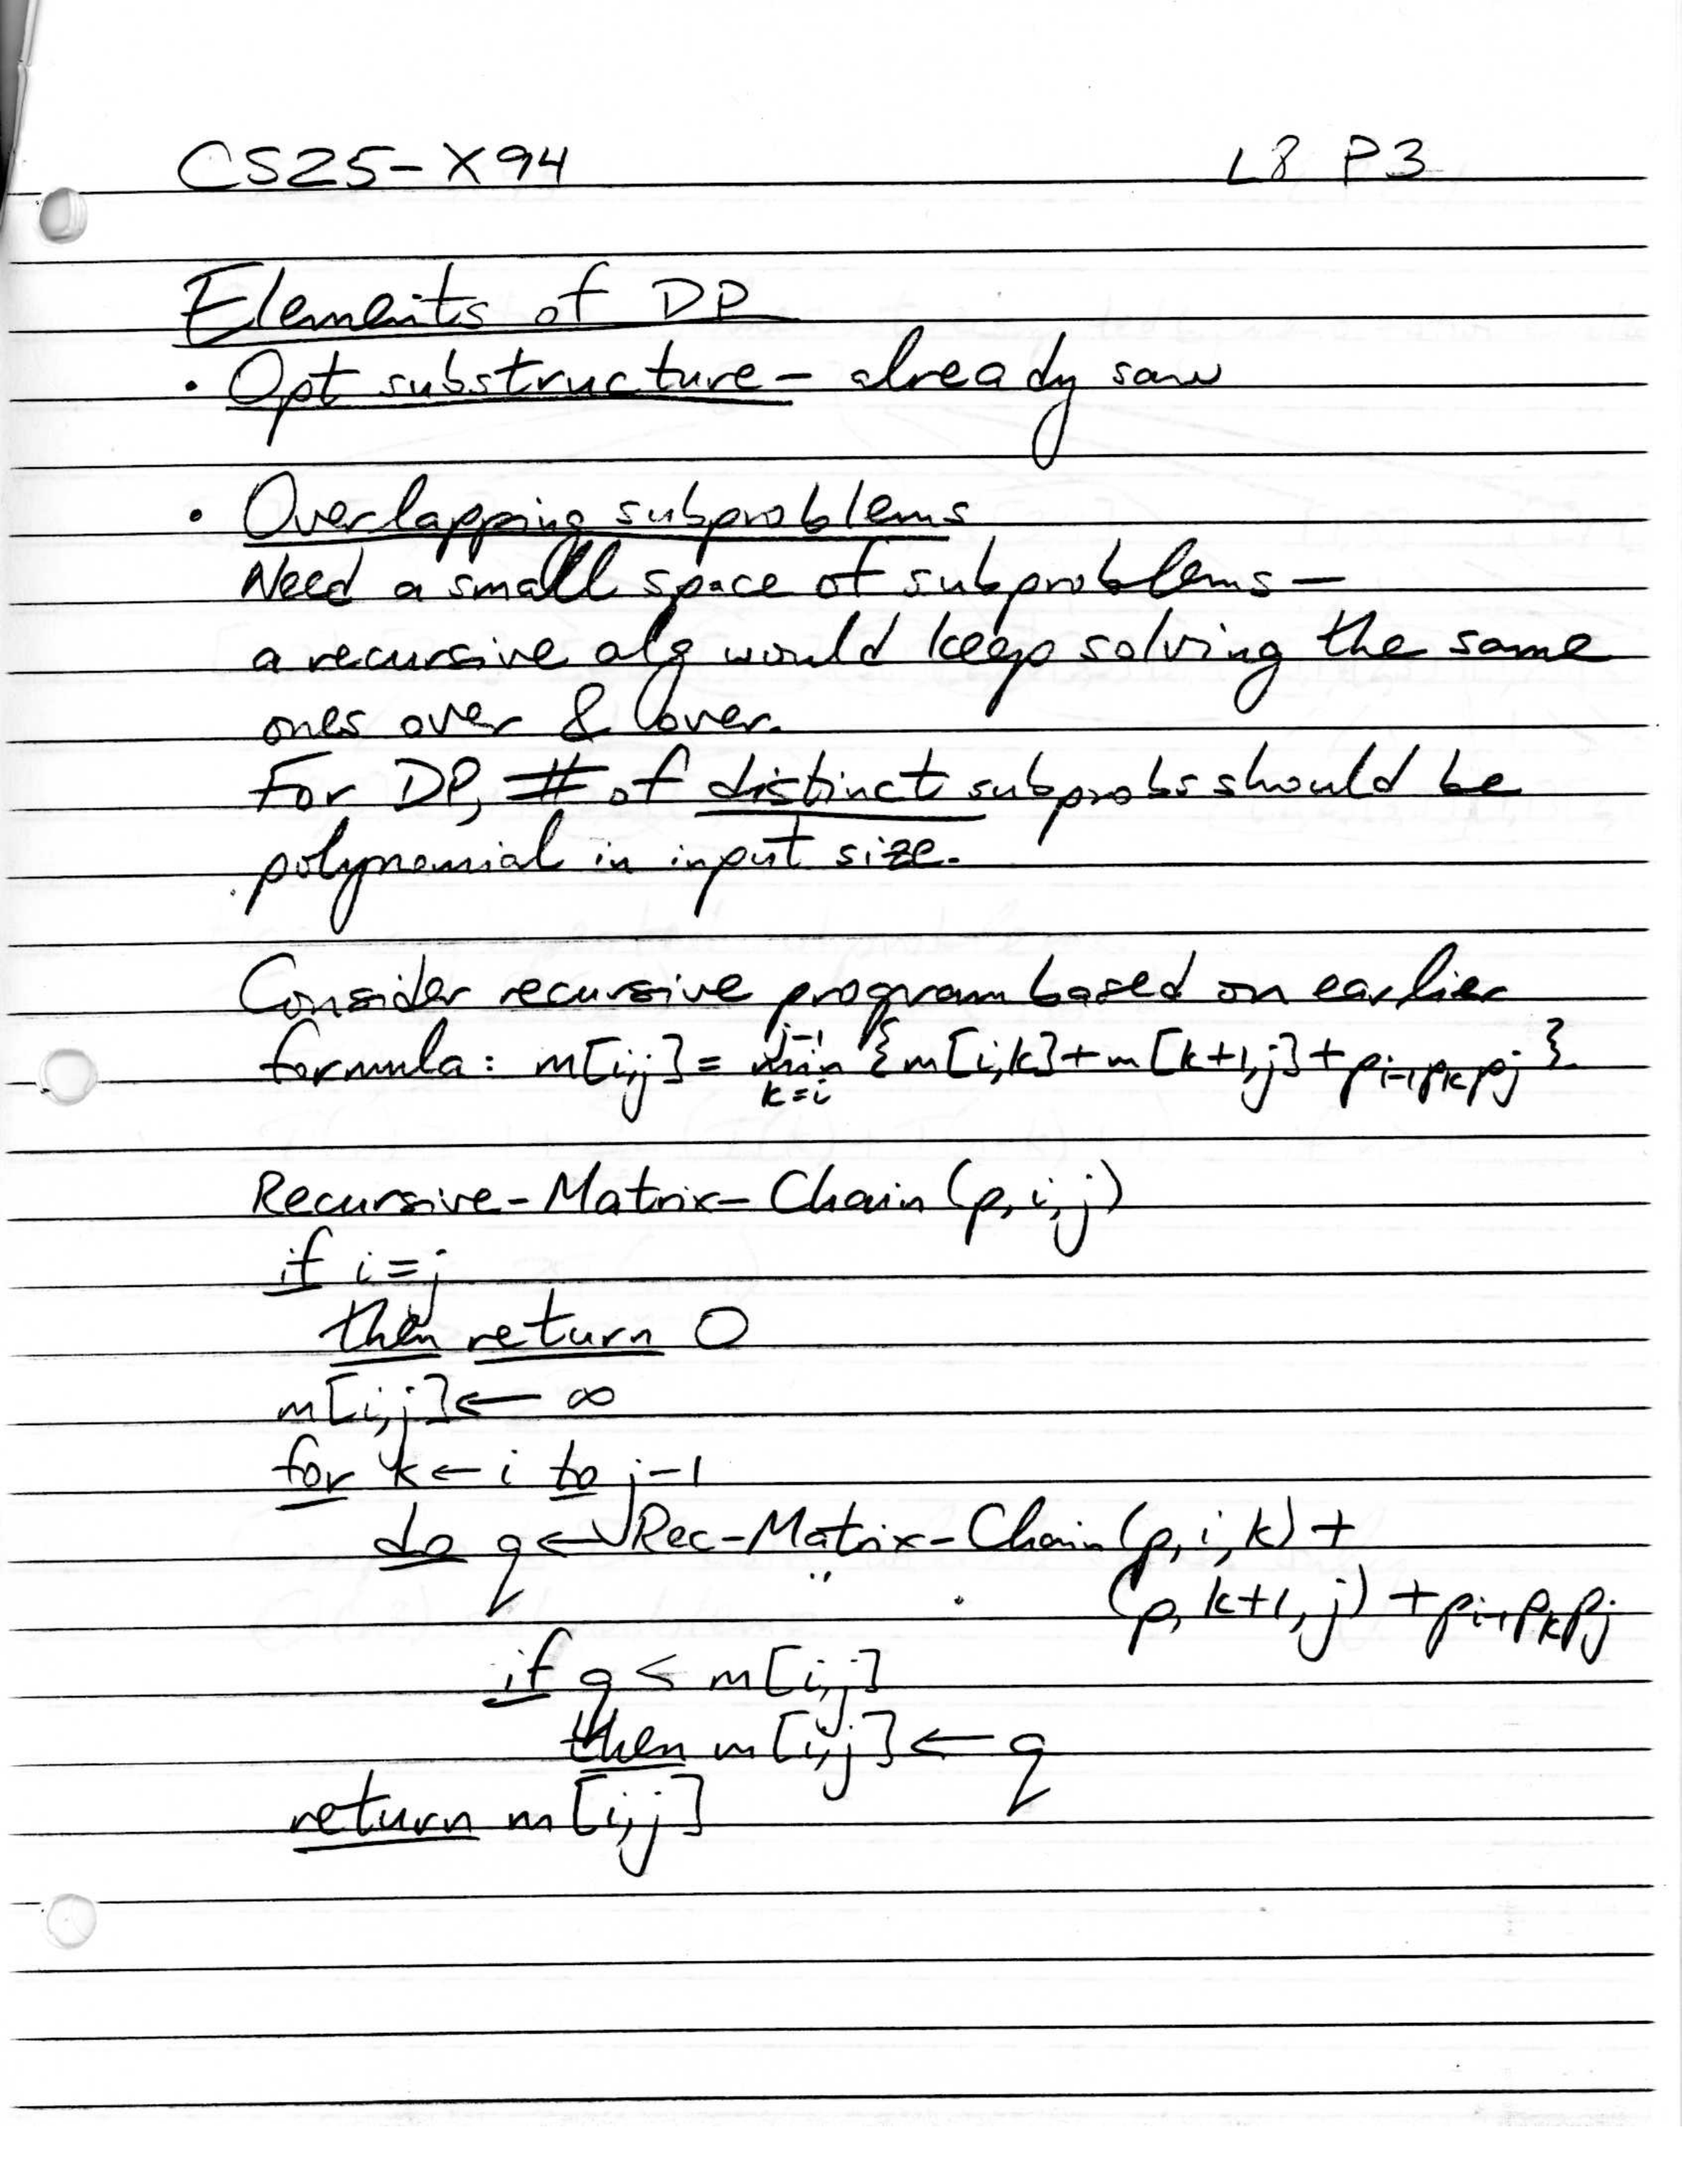 CS25-X94 L8 P3
Elements of DP
• Opt substructure - already saw
• Overlapping subproblems
Need a small space of subproblems —
a recursive alg would keep solving the same
ones over & over.
For DP, # of distinct subprobs should be
polynomial in input size.
Consider recursive program based on earlier
formula: m[i,j] = min_{k=i}^{j-1} {m[i,k]+m[k+1,j]+p_{i-1}p_kp_j}.
Recursive-Matrix-Chain(p,i,j)
if i=j
then return 0
m[i,j] ← ∞
for k ← i to j-1
do q ← Rec-Matrix-Chain(p,i,k) +
" (p,k+1,j) + p_{i-1}p_kp_j
if q < m[i,j]
then m[i,j] ← q
return m[i,j]